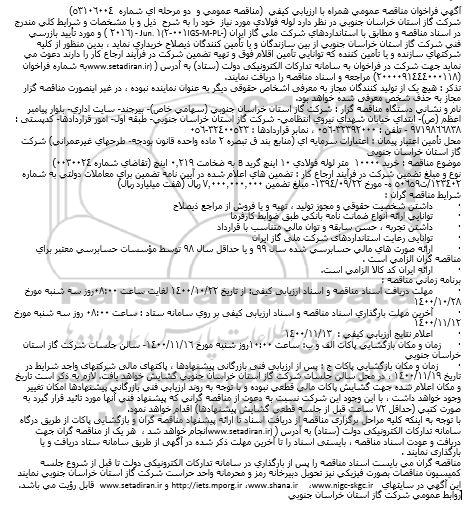 آگهی فراخوان مناقصه عمومی همراه با ارزیابی کیفی (مناقصه عمومی و دو مرحله ای شماره ۵۳۱۰۶۰۰۴)
شرکت گاز استان خراسان جنوبی در نظر دارد لوله فولادی مورد نیاز خود را به شرح ذیل و با مشخصات و شرایط کلی مندرج
در اسناد مناقصه و مطابق با استانداردهای شرکت ملی گاز ایران (IGS-M-PL-۰۰۱(۲) Jun. ۲۰۱۶) و مورد تأیید بازرسی
فنی شرکت گاز استان خراسان جنوبی از بین سازندگان و یا تأمین کنندگان ذیصلاح خریداری نماید ، بدین منظور از کلیه
شرکتهای سازنده و یا تأمین کننده که توانایی تأمین اقلام فوق و تهیه تضمین شرکت در فرآیند ارجاع کار را دارند دعوت می
نماید جهت شرکت در فراخوان به سامانه تدارکات الکترونیکی دولت (ستاد) به آدرس (www.setadiran.ir)به شماره فراخوان
(۲۰۰۰۰۹۱۴۴۴۰۰۰۱۱۸) مراجعه و اسناد مناقصه را دریافت نمایند.
تذکر : هیچ یک از تولید کنندگان مجاز به معرفی اشخاص حقوقی دیگر به عنوان نماینده نبوده ، در غیر اینصورت مناقصه گزار
مجاز به حذف شرکت معرفی شده خواهد بود.
نام و نشانی دستگاه مناقصه گزار : شرکت گاز استان خراسان جنوبی (سهامی خاص)- بیرجند- سایت اداری- بلوار پیامبر
اعظم (ص)- ابتدای خیابان شهدای نیروی انتظامی- شرکت گاز استان خراسان جنوبی- طبقه اول- امور قراردادها- کدپستی :
۹۷۱۹۸۶۶۸۳۸ - تلفن : ۳۳۳۹۲۰۰۰-۰۵۶ ، نمابر قراردادها : ۳۲۴۰۰۵۲۳-۰۵۶
محل تأمین اعتبار پیمان : اعتبارات سرمایه ای (منابع بند ق تبصره ۲ ماده واحده قانون بودجه- طرحهای غیرعمرانی) شرکت
گاز استان خراسان جنوبی
موضوع مناقصه : خرید ۱۰۰۰۰ متر لوله فولادی ۱۰ اینچ گرید B به ضخامت ۰,۲۱۹ اینچ (تقاضای شماره ۰۰۳۰۰۲۴)
نوع و مبلغ تضمین شرکت در فرآیند ارجاع کار : تضمین های اعلام شده در آیین نامه تضمین برای معاملات دولتی به شماره
۱۲۳۴۰۲/ت۵۰۶۵۹ه- مورخ ۱۳۹۴/۰۹/۲۲- مبلغ تضمین ۷,۰۰۰,۰۰۰,۰۰۰ ریال (هفت میلیارد ریال)
شرایط مناقصه گران :
داشتن شخصیت حقوقی و مجوز تولید ، تهیه و یا فروش از مراجع ذیصلاح
توانایی ارائه انواع ضمانت نامه بانکی طبق ضوابط کارفرما
داشتن تجربه ، حسن سابقه و توان مالی متناسب با قرارداد
توانایی رعایت استانداردهای شرکت ملی گاز ایران
ارائه صورت های مالی حسابرسی شده سال ۹۹ و یا حداقل سال ۹۸ توسط مؤسسات حسابرسی معتبر برای
مناقصه گران الزامی است .
ارائه ایران کد کالا الزامی است.
برنامه زمانی مناقصه :
مهلت دریافت اسناد مناقصه و اسناد ارزیابی کیفی: از تاریخ ۱۴۰۰/۱۰/۲۲ لغایت ساعت ۰۸:۰۰روز سه شنبه مورخ
۱۴۰۰/۱۰/۲۸
آخرین مهلت بارگذاری اسناد مناقصه و اسناد ارزیابی کیفی بر روی سامانه ستاد : ساعت ۰۸:۰۰ روز سه شنبه مورخ
۱۴۰۰/۱۱/۱۲
اعلام نتایج ارزیابی کیفی : ۱۴۰۰/۱۱/۱۳
زمان و مکان بازگشایی پاکات الف و ب: ساعت ۱۰:۰۰روز شنبه مورخ ۱۴۰۰/۱۱/۱۶- سالن جلسات شرکت گاز استان
خراسان جنوبی
زمان و مکان بازگشایی پاکات ج : پس از ارزیابی فنی بازرگانی پیشنهادها ، پاکتهای مالی شرکتهای واجد شرایط در
تاریخ ۱۴۰۰/۱۱/۱۹ ، در محل سالن جلسات شرکت گاز استان خراسان جنوبی گشایش خواهد یافت. لازم به ذکر است تاریخ
و مکان اعلام شده جهت گشایش پاکات مالی قطعی نبوده و با توجه به روند ارزیابی فنی بازرگانی پیشنهادها امکان تغییر
وجود خواهد داشت ، با این وجود این شرکت نسبت به دعوت از مناقصه گرانی که پیشنهاد فنی آنها مورد تائید قرار گیرد به
صورت کتبی (حداقل ۷۲ ساعت قبل از جلسه قطعی گشایش پیشنهادها) اقدام خواهد نمود.
با توجه به اینکه کلیه مراحل برگزاری مناقصه از دریافت اسناد تا ارائه پیشنهاد مناقصه گران و بازگشایی پاکات از طریق درگاه
سامانه تدارکات الکترونیکی دولت (ستاد) به آدرس (www.setadiran.ir)انجام خواهد شد ، هر یک از مناقصه گران جهت
دریافت و عودت اسناد مناقصه ، بایستی اسناد را تا آخرین مهلت ذکر شده در آگهی از طریق سامانه ستاد دریافت و یا
بارگذاری نمایند .
مناقصه گران می بایست اسناد مناقصه را پس از بارگذاری در سامانه تدارکات الکترونیکی دولت تا قبل از شروع جلسه
کمیسیون مناقصات بصورت فیزیکی نیز تحویل دبیرخانه رمز و محرمانه واحد حراست شرکت گاز استان خراسان جنوبی نمایند
این آگهی در سایتهای www.nigc-skgc.ir، www.shana.ir، http://iets.mporg.ir و www.setadiran.ir قابل رؤیت می باشد.
روابط عمومی شرکت گاز استان خراسان جنوبی